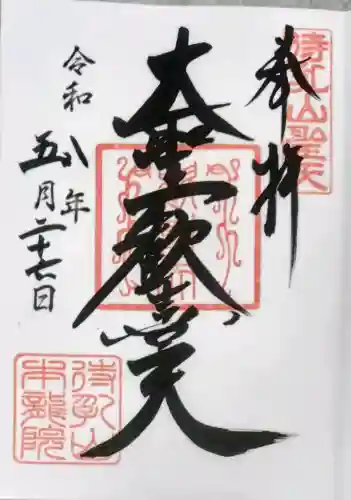 奉拝
待乳山聖天
大聖歓喜天
令和八年
五月二十七日
待乳山
本龍院